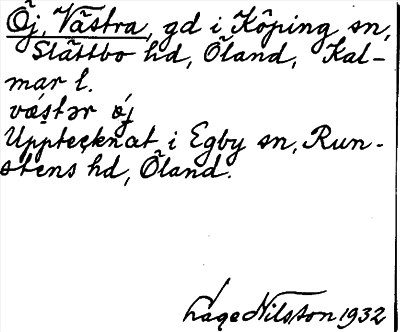 Öj, Västra, gd i Köping sn,
Slättbo hd, Öland, Kal-
mar l.
væstər öj
Upptecknat i Egby sn, Run-
stens hd, Öland.
Låge Nilsson 1932